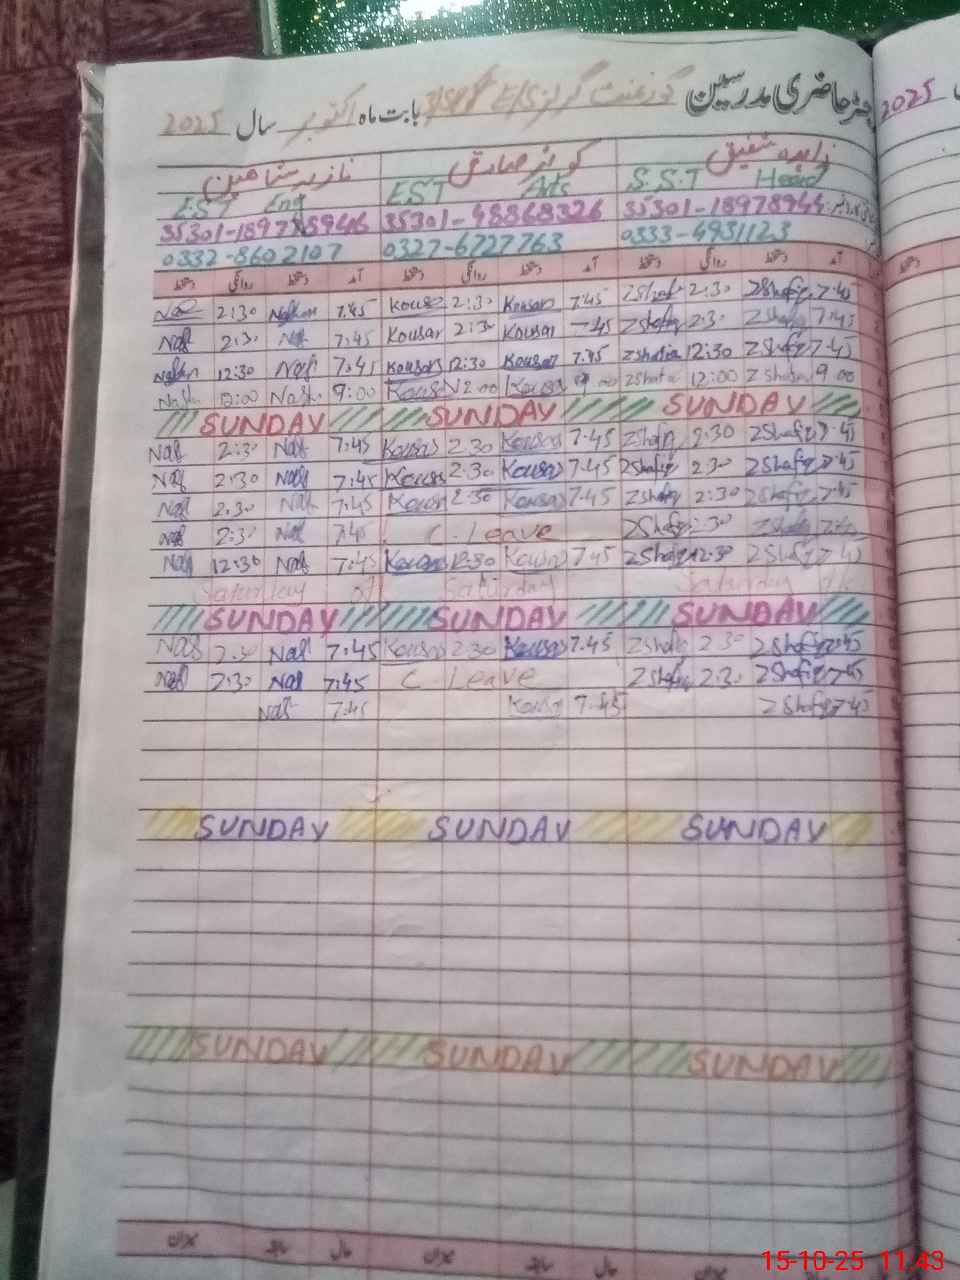 رجسٹر حاضری مدرسین گورنمنٹ گرلز E/S بابت ماہ اکتوبر سال 2025
2025
زاہدہ شفیق کوثر صادق نازیہ شاہین
S.S.T Head EST Arts EST Eng
35301-18978944 35301-48868326
0333-4931123 0327-6727763 0332-8602107
آمد دستخط روانگی دستخط آمد دستخط روانگی دستخط آمد دستخط روانگی دستخط
2:30 7:45 Kousar 2:30 Kousar 7.45 ZShafiq 2:30 ZShafiq 7.45
Naz 2:30 Naz 7.45 Kousar 2:30 Kousar 7.45 ZShafiq 2:30 ZShafiq 7.45
12:30 7.45 Kousar 12:30 Kousar 7.45 12:30 ZShafiq 7.45
12:00 9:00 Kousar 12:00 Kousar 9:00 12:00 9:00
SUNDAY SUNDAY SUNDAY
Naz 2:30 Naz 7.45 Kousar 2.30 Kousar 7.45 ZShafiq 2:30 ZShafiq 7.45
Naz 2:30 Naz 7.45 Kousar 2.30 Kousar 7.45 ZShafiq 2:30 ZShafiq 7.45
Naz 2.30 Naz 7.45 Kousar 2:30 Kousar 7.45 ZShafiq 2:30 ZShafiq 7.45
Naz 2:30 Naz 7.45 C. Leave ZShafiq 2:30 ZShafiq 7.45
Naz 12:30 Naz 7.45 Kousar 12:30 Kousar 7.45 ZShafiq 12:30 ZShafiq 7.45
Saturday Saturday Saturday
SUNDAY SUNDAY SUNDAY
Naz 2:30 Naz 7:45 Kousar 2:30 Kousar 7.45 ZShafiq 2:30 ZShafiq 7.45
Naz 2:30 Naz 7.45 C. Leave ZShafiq 2:30 ZShafiq 7.45
Naz 7.45 Kousar 7.45 ZShafiq 7.45
SUNDAY SUNDAY SUNDAY
SUNDAY SUNDAY SUNDAY
حال سابقہ میزان حال سابقہ میزان
15-10-25 11:43